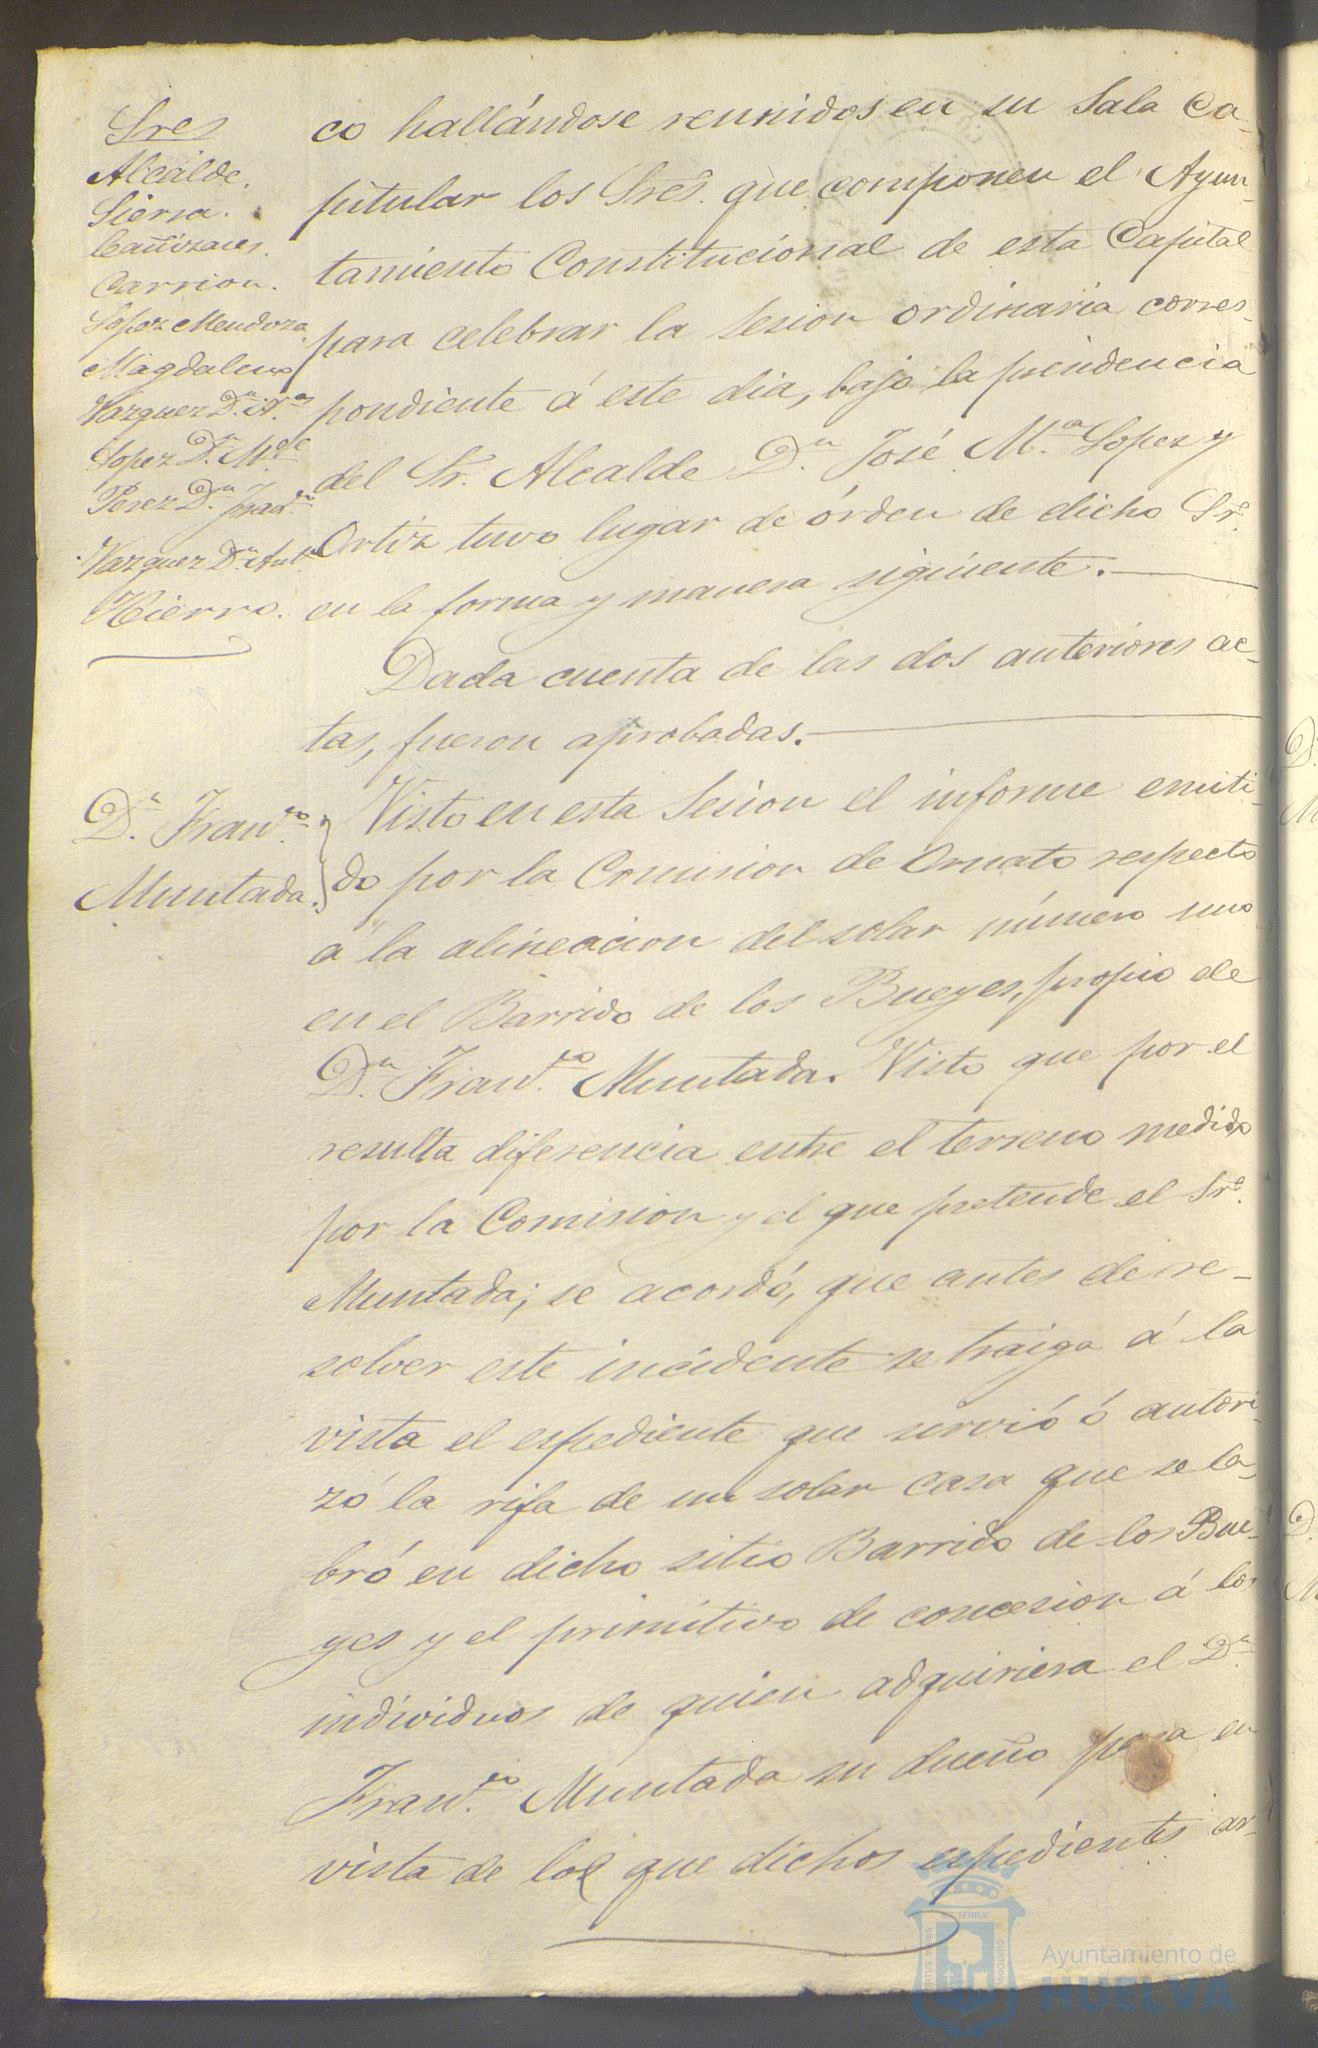 Sres
Alcalde.
Sierra.
Cañizares.
Carrion.
Lopez Mendoza
Magdaleno
Vazquez Dn
Lopez Dn Ml
Perez Dn Franco
Vazquez Dn Anto
Hierro.
co hallándose reunidos en su Sala Ca-
pitular los Sres. que componen el Ayun-
tamiento Constitucional de esta Capital
para celebrar la Sesion ordinaria corres-
pondiente á este dia, bajo la presidencia
del Sr. Alcalde Dn. José Ma. Lopez y
Ortiz tuvo lugar de órden de dicho Sr.
en la forma y manera siguiente.
Dada cuenta de las dos anteriores ac-
tas, fueron aprobadas.
Dn. Franco.
Muntada.
Visto en esta Sesion el informe emiti-
do por la Comision de Ornato respecto
a la alineacion del solar número uno
en el Barrido de los Bueyes, propio de
Dn. Franco. Muntada. Visto que por el
resulta diferencia entre el terreno medido
por la Comision y el que pretende el Sr.
Muntada; se acordó, que antes de re-
solver este incidente se traiga á la
vista el espediente que sirvió ó autori-
zó la rifa de un solar casa que se la-
bró en dicho sitio Barrido de los Bue-
yes y el primitivo de concesion á los
individuos de quien adquiriera el Dn.
Franco. Muntada su dueño para en
vista de lo que dichos espedientes ar-
Ayuntamiento de
HUELVA